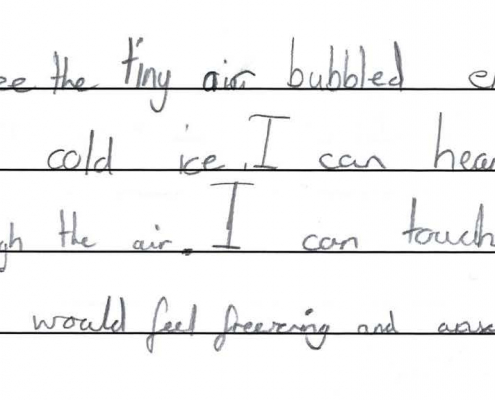 ee the tiny air bubbled e
cold ice. I can hea
gh the air. I can touch
would feel freezing and